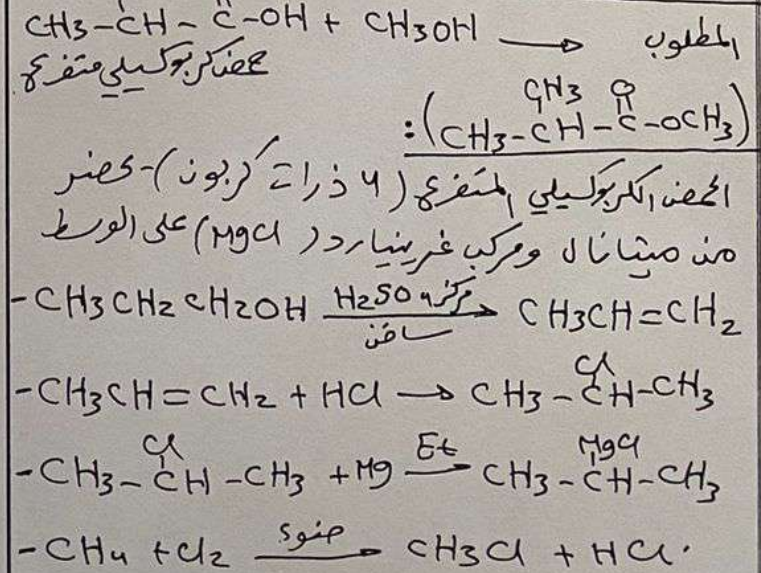 CH3-CH-C-OH + CH3OH → المطلوب
حمض كربوكسيلي متفرع
CH3 O
:(CH3-CH-C-OCH3)
الحمض الكربوكسيلي المتفرع (4 ذرات كربون)-يحضر
من ميتانال ومركب غرينيارد (MgCl) على الوسط
-CH3CH2CH2OH H2SO4 مركز ساخن → CH3CH=CH2
Cl
-CH3CH=CH2 + HCl → CH3-CH-CH3
Cl MgCl
-CH3-CH-CH3 + Mg Et → CH3-CH-CH3
-CH4 + Cl2 ضوء → CH3Cl + HCl.